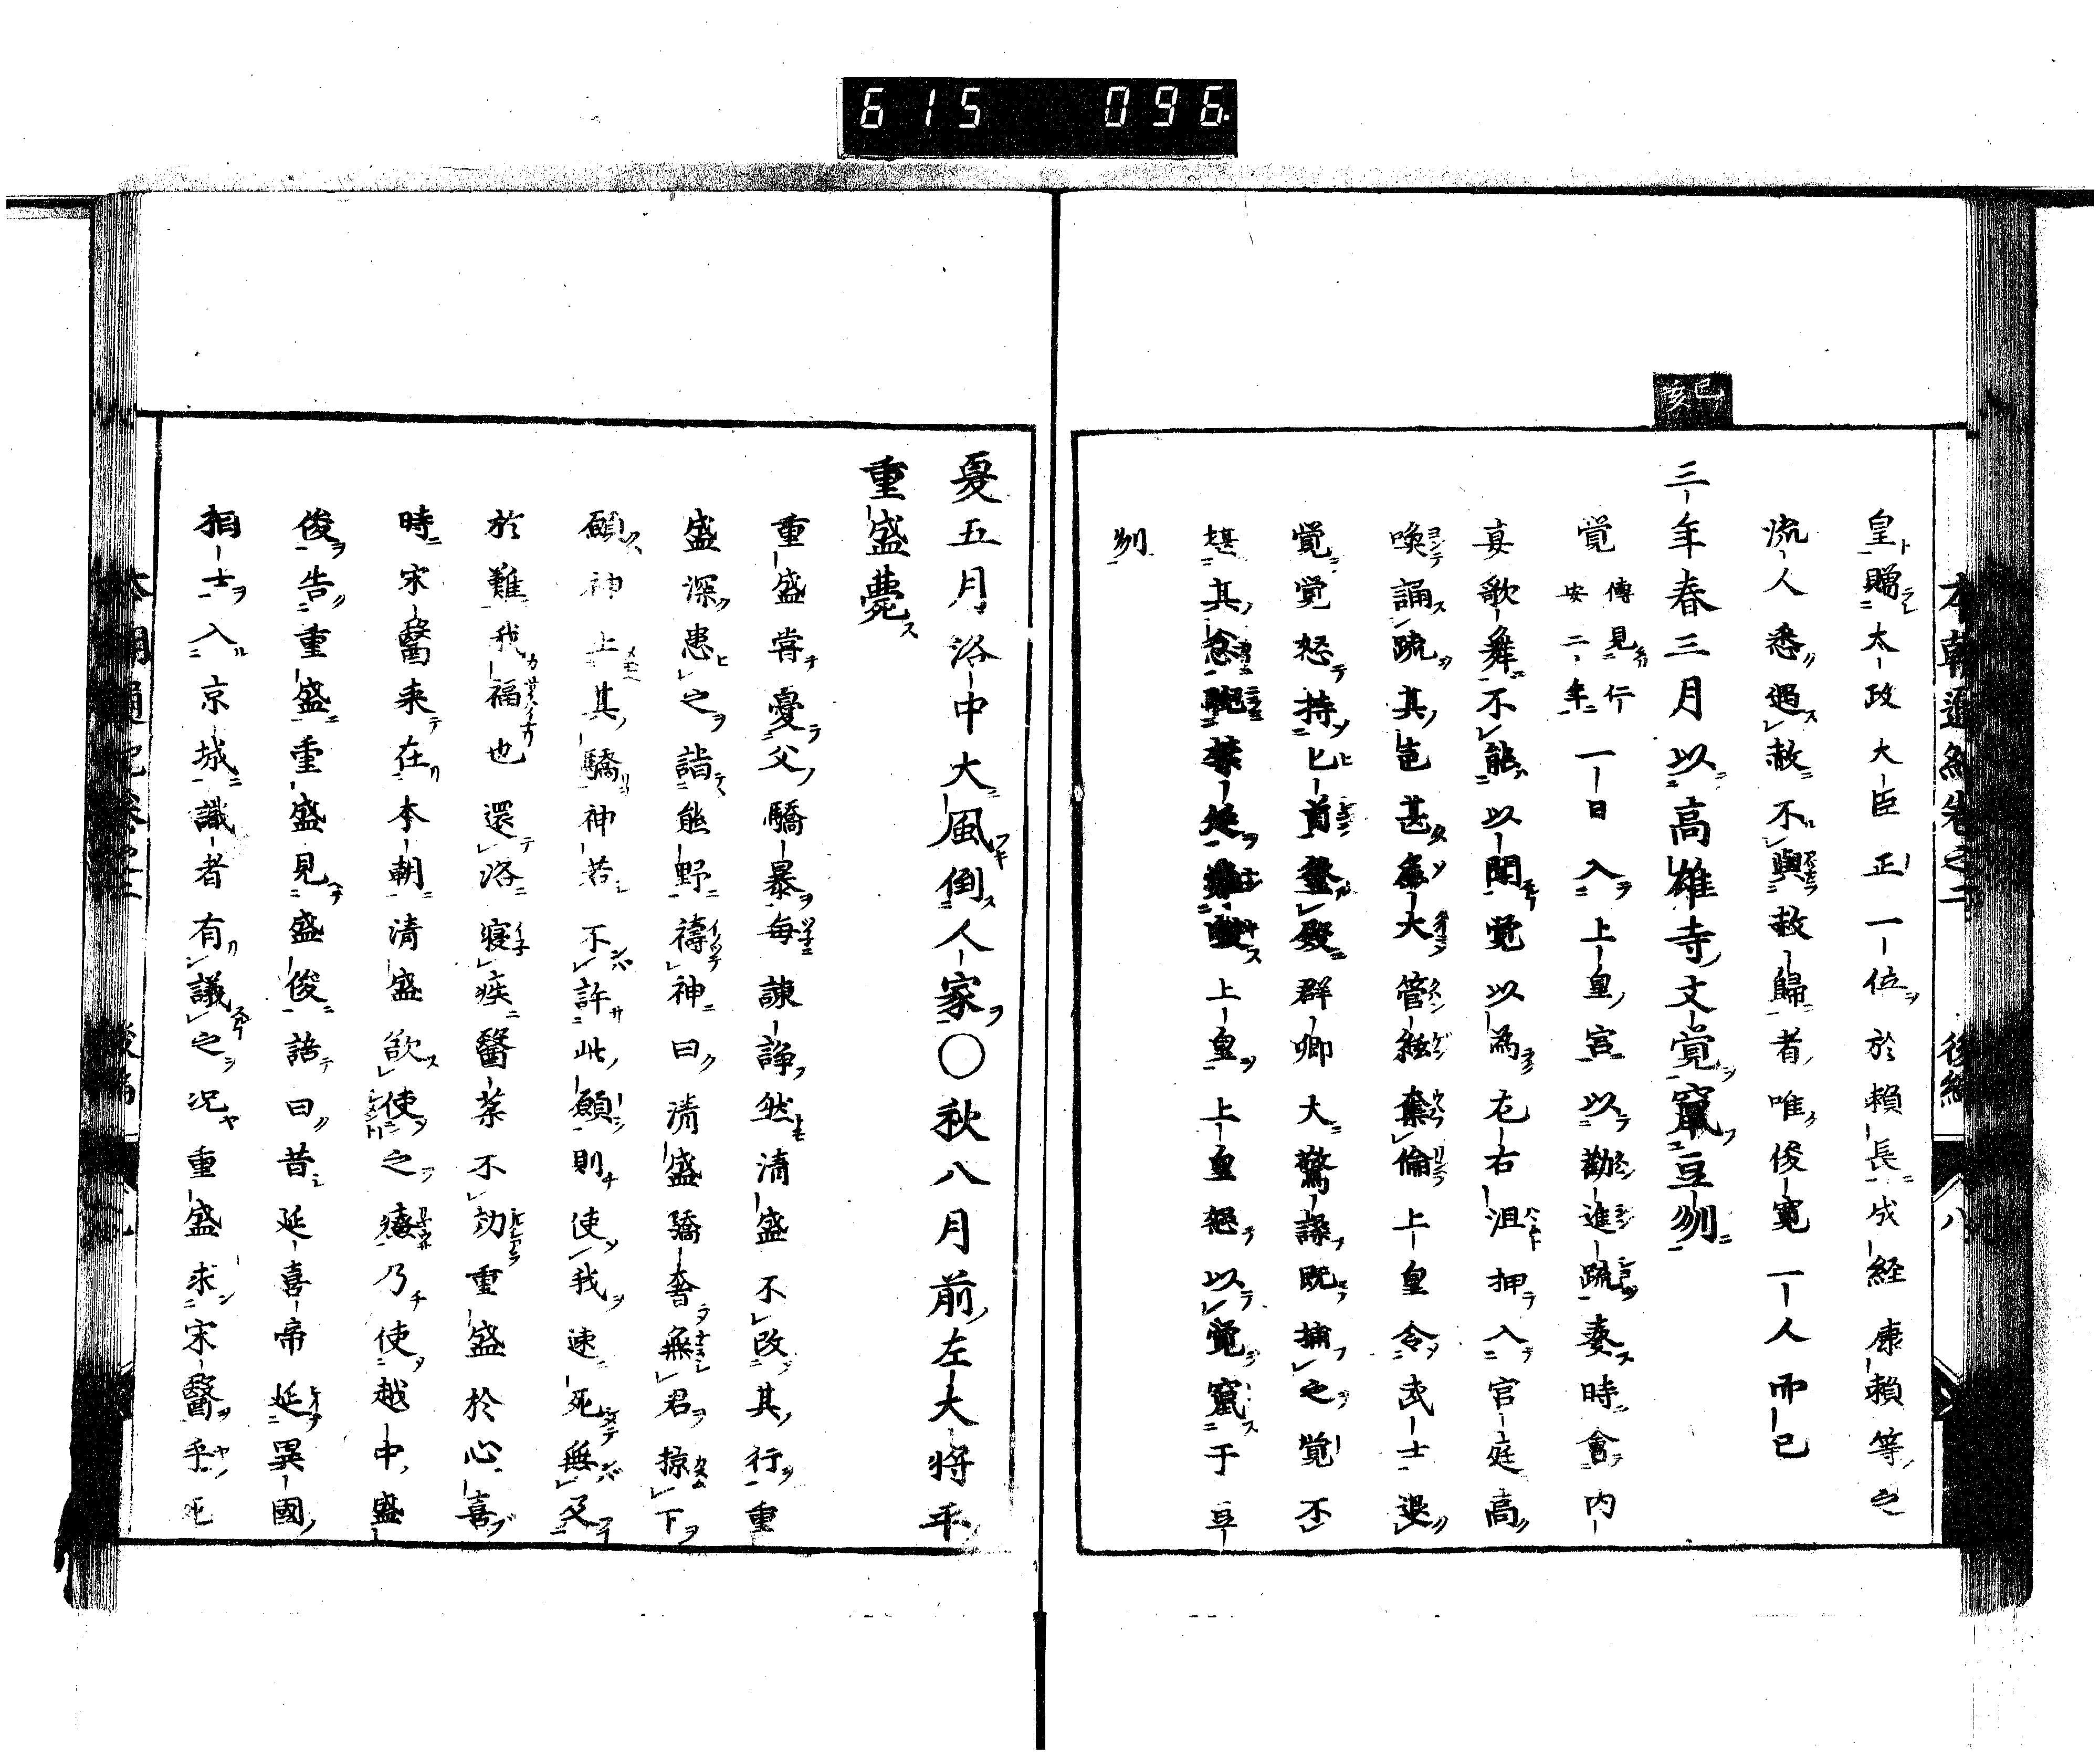 615 096
本朝通紀卷之二 後編 八
皇贈太政大臣正一位於賴長成経康賴等之
流人悉遇赦不與赦歸者唯俊寬一人而已
己亥
三年春三月以高雄寺文覚竄豆州
覚傳見仁安二年一日入上皇宮以勸進疏奏時會內
宴歌舞不能以聞覚以為左右沮押入宮庭高
喚誦疏其邑甚奪大管絃奪倫上皇令武士退
覚覚怒持匕首登殿群卿大驚譟既捕之覚不
堪其忿上皇上皇怒以覚竄于豆
州
夏五月洛中大風倒人家〇秋八月前左大将平
重盛薨
重盛嘗憂父驕暴每諫諍然清盛不改其行重
盛深患之詣熊野禱神曰清盛驕奢無君掠下
願神止其驕神若不許此願則使我速死無及
於難我福也還洛寢疾醫藥不効重盛於心喜
時宋醫来在本朝清盛欲使之療乃使越中盛
俊告重盛重盛見盛俊語曰昔延喜帝延異國
相士入京城識者有議之况重盛求宋醫乎死